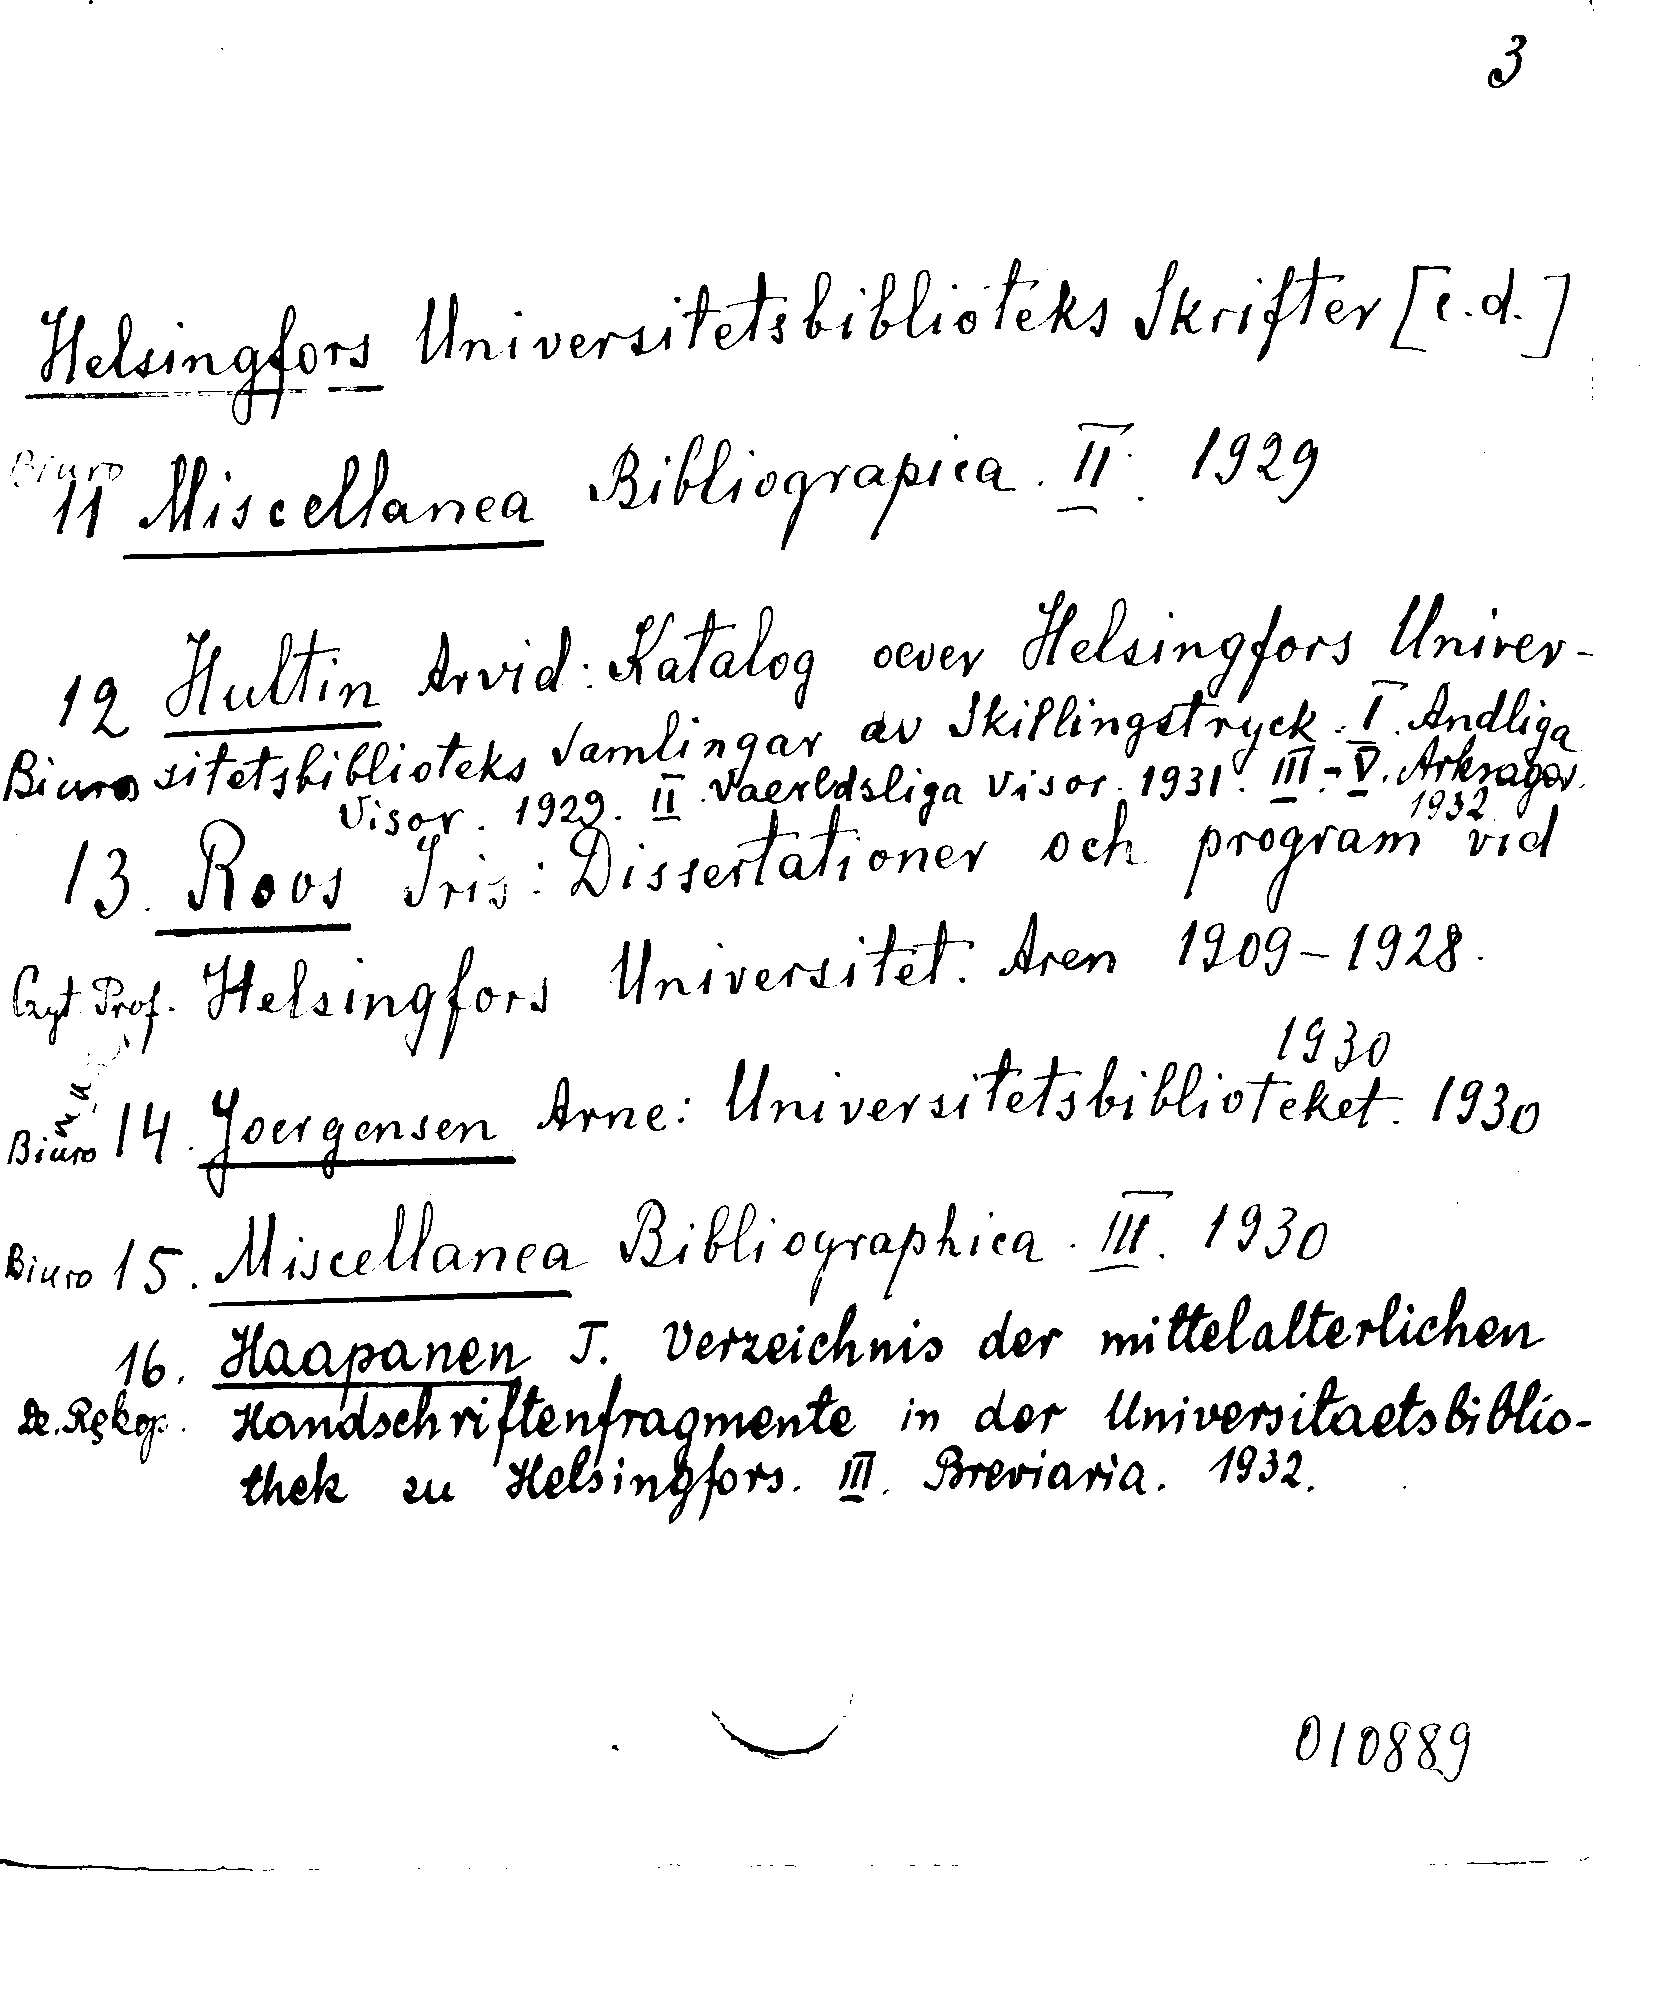 3
Helsingfors Universitetsbiblioteks Skrifter [c.d.]
Biuro
11 Miscellanea Bibliograpica. II. 1929
12 Hultin Arvid: Katalog oever Helsingfors Univer-
Biuro sitetsbiblioteks Samlingar av Skillingstryck. I. Andliga
Visor. 1929. II. Vaerldsliga Visor. 1931. III-V. Arksagor.
1932
13. Roos Iris: Dissertationer och program vid
Czyt. Prof. Helsingfors Universitet. Aren 1909-1928.
1930
Biuro 14. Joergensen Arne: Universitetsbiblioteket. 1930
Biuro 15. Miscellanea Bibliographica. III. 1930
16. Haapanen T. Verzeichnis der mittelalterlichen
Dz. Rękop. Handschriftenfragmente in der Universitaetsbiblio-
thek zu Helsingfors. III. Breviaria. 1932.
010889